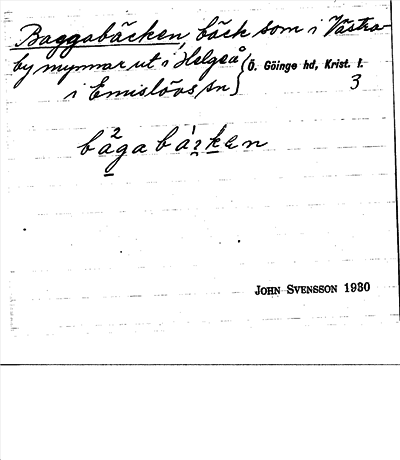 Baggabäcken, bäck som i Västra-
by mynnar ut i Helgeå,
i Emislövs sn
Ö. Göinge hd, Krist. l.
3
JOHN SVENSSON 1930